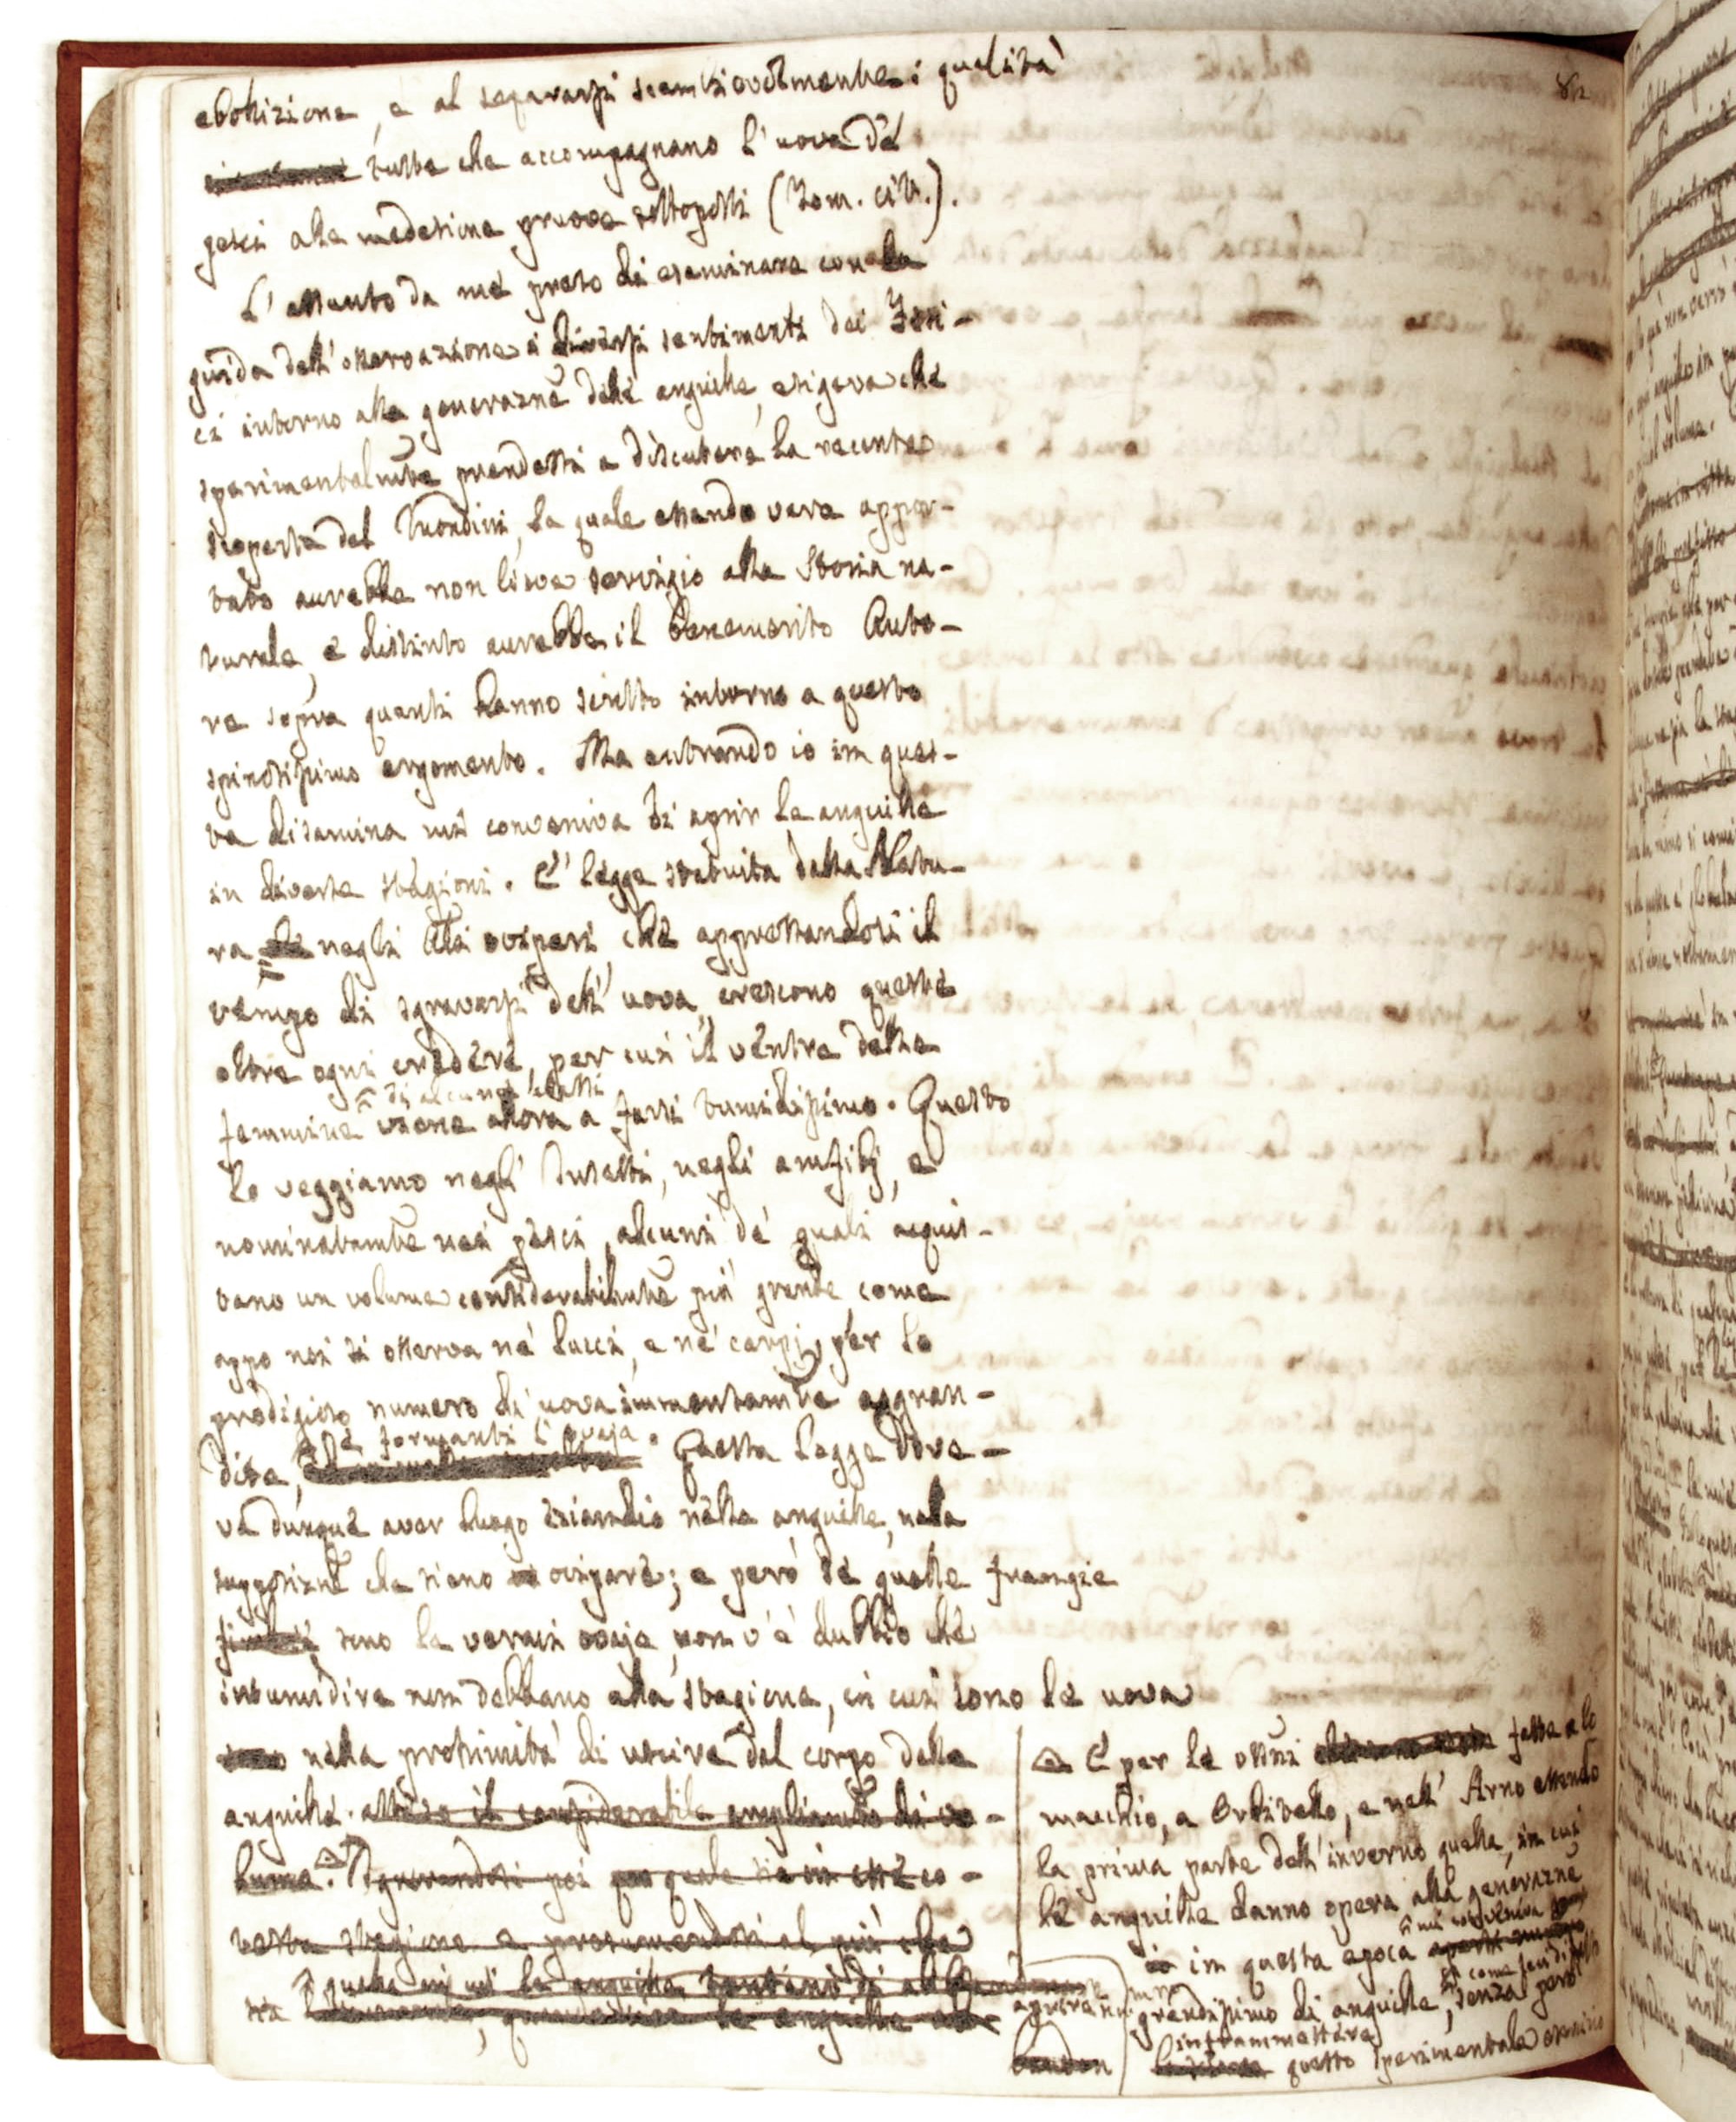 ebollizione, e al separarsi scambievolmente: qualità
tutte che accompagnano l'uova de'
pesci alla medesima pruova sottoposti (Tom. cit.).
L'assunto da me preso di esaminare con la
guida dell'osservazione i diversi sentimenti dei Fisi-
ci intorno alla generazne delle anguille, esigeva che
sperimentalmte prendessi a discutere la recente
scoperta del Mondini, la quale essendo vera appor-
tato avrebbe non lieve servigio alla Storia na-
turale, e distinto avrebbe il benemerito Auto-
re sopra quanti hanno scritto intorno a questo
spinosissimo argomento. Ma entrando io in ques-
ta disamina mi conveniva di aprir le anguille
in diverse stagioni. E' legge statuita dalla Natu-
ra negli Ati ovipari, che appressandosi il
tempo di sgravarsi dell'uova, crescono queste
oltre ogni credere, per cui il ventre della
di alcune
femmine viene allora a farsi tumidissimo. Questo
lo veggiamo negli Insetti, negli amfibj, e
nominatamte nei pesci, alcuni de' quali acquis-
tano un volume considerabilmte più grande, come
appo noi si osserva ne' lucci, e ne' carpi, per lo
prodigioso numero di uova immensamte aggran-
formanti l'ovaja.
dite, Questa legge dove-
va dunque aver luogo eziandio nelle anguille, nella
supposizne che sieno ovipare; e però se quelle frangie
sono le veraci ovaje, non v'è dubbio che
intumidire non debbano alla stagione, in cui sono le uova
nella prossimità di uscire dal corpo delle
anguille. atteso il considerabile ampliamto di vo-
lume. Ignorandosi poi quale sia in esse co-
testa stagione e presumendosi al più che
sia quella in cui le anguille
E per le ossni fatte a Co
macchio, a Orbitello, e nell'Arno essendo
la prima parte dell'inverno quella, in cui
le anguille danno opera alla generazne
mi conveniva
in questa epoca
aprire nu- mero grandissimo di anguille, come feci di fatto, senza però
intrammettere
questo sperimentale esame